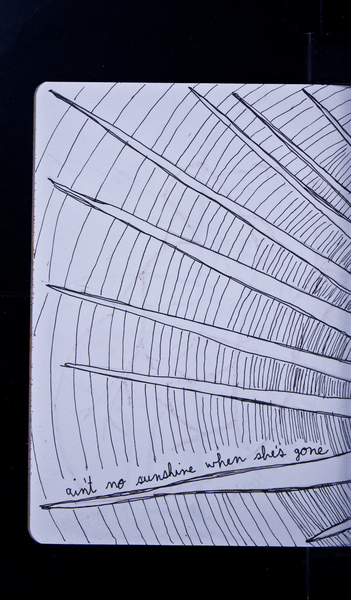 ain't no sunshine when she's gone